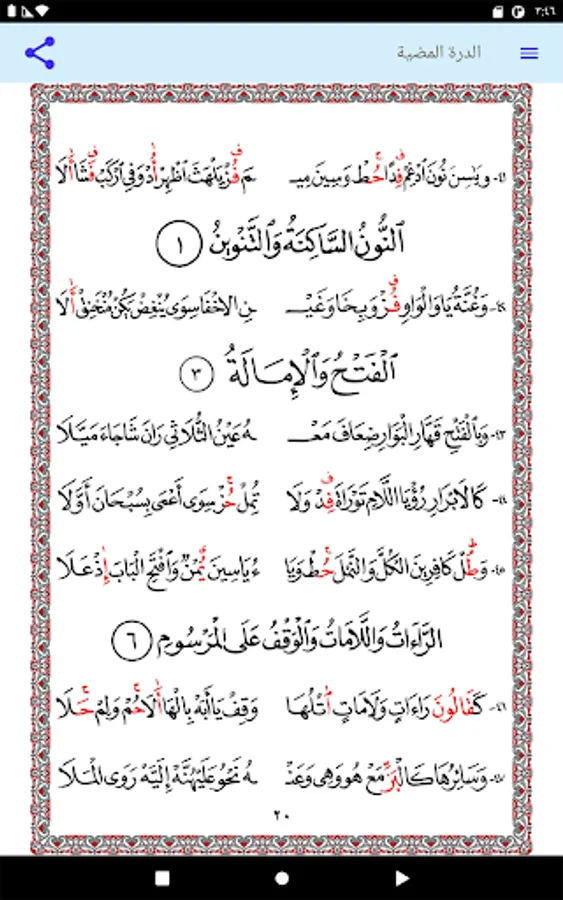 ٣:٤٦
الدرة المضية
٤١- وَيَاسِينَ نُونَ ادْغِمْ فِدًا حُطْ وَسِينَ مِيـ ـمَ فُزْ يَلْهَثَ اظْهِرْ أُدْ وَفِي ارْكَبْ فَشَا أَلَا
النُّونُ السَّاكِنَةُ وَالتَّنْوِينُ ١
٤٢- وَغُنَّةُ يَا وَالْوَاوِ فُزْ وَبِخَا وَغَيْـ ـنِ الِاخْفَا سِوَى يُنْغِضْ يَكُنْ مُنْخَنِقْ أَلَا
الْفَتْحُ وَالْإِمَالَةُ ٣
٤٣- وَبِالْفَتْحِ قَهَّارِ الْبَوَارِ ضِعَافَ مَعْـ ـهُ عَيْنُ الثُّلَاثِي رَانَ شَا جَاءَ مَيَّلَا
٤٤- كَالَابْرَارِ رُؤْيَا اللَّامِ تَوْرَاةَ فِدْ وَلَا تُمِلْ حُزْ سِوَى أَعْمَى بِسُبْحَانَ أَوَّلَا
٤٥- وَطُلْ كَافِرِينَ الْكُلَّ وَالنَّمْلَ حُطْ وَيَا ءُ يَاسِينَ يُمْنٌ وَافْتَحِ الْبَابَ إِذْ عَلَا
الرَّاءَاتُ وَاللَّامَاتُ وَالْوَقْفُ عَلَى الْمَرْسُومِ ٦
٤٦- كَقَالُونَ رَاءَاتٍ وَلَامَاتٍ اتْلُهَا وَقِفْ يَا أَبَهْ بِالْهَا أَلَا حُمْ وَلِمْ حَلَا
٤٧- وَسَائِرُهَا كَالْبَزِّ مَعْ هُوَ وَهِيْ وَعَنْـ ـهُ نَحْوُ عَلَيْهُنَّهْ إِلَيَّهْ رَوَى الْمَلَا
٢٠